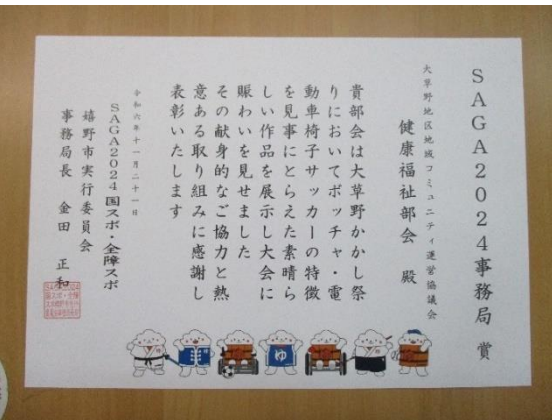 SAGA2024事務局賞
大草野地区地域コミュニティ運営協議会
健康福祉部会 殿
貴部会は大草野かかし祭
りにおいてボッチャ・電
動車椅子サッカーの特徴
を見事にとらえた素晴ら
しい作品を展示し大会に
賑わいを見せました
その献身的なご協力と熱
意ある取り組みに感謝し
表彰いたします
令和六年十一月二十一日
SAGA2024国スポ・全障スポ
嬉野市実行委員会
事務局長 金田 正和
ゆ